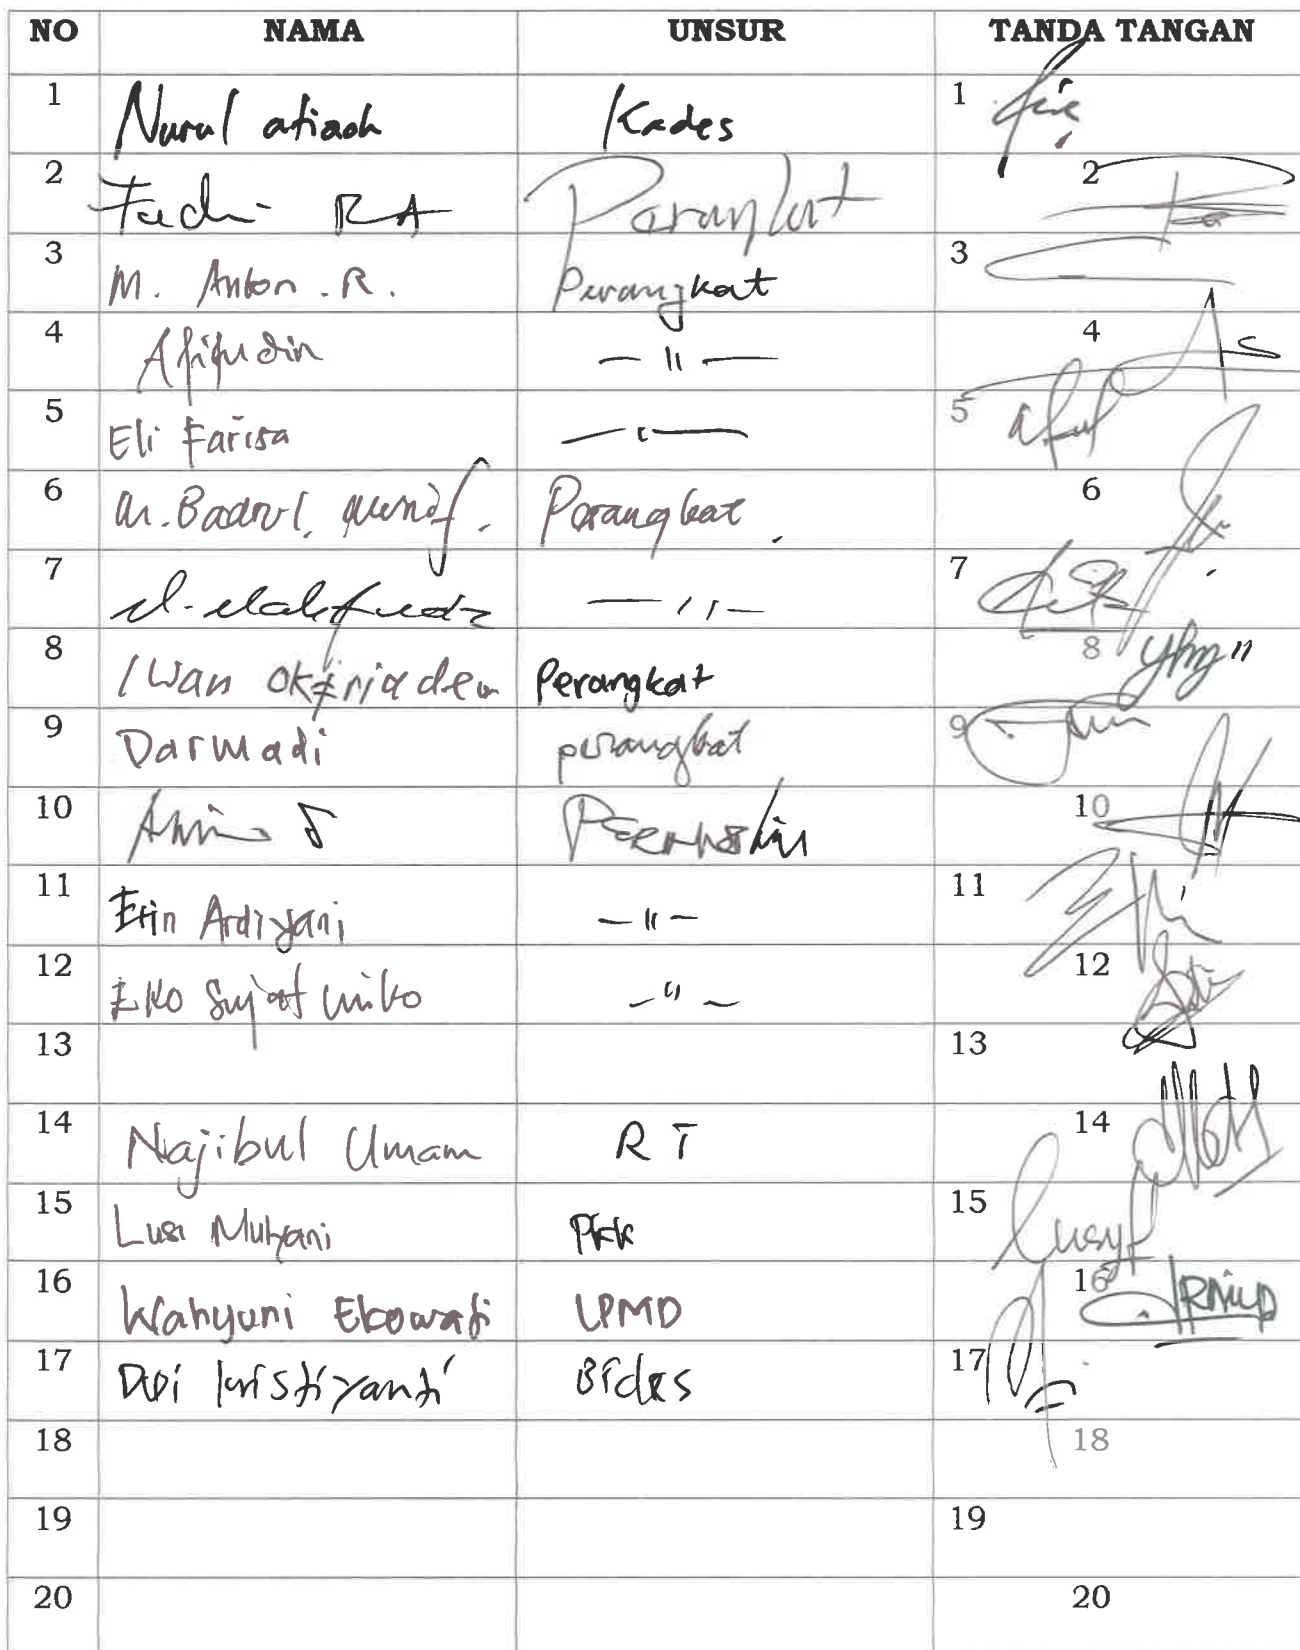 NO NAMA UNSUR TANDA TANGAN
1 Nurul atiaoh Kades 1
2 RA Perangkat 2
3 M. Anton . R. Perangkat 3
4 Afifudin — " — 4
5 Eli Farisa — " — 5
6 M. Badrul. Munif. Perangkat. 6
7 — " — 7
8 Iwan Perangkat 8
9 Darmadi perangkat 9
10 10
11 Erin Ardiyani — " — 11
12 Eko Sujatmiko — " — 12
13 13
14 Najibul Umam RT 14
15 Lusi Mulyani PKK 15
16 Wahyuni Ekowati LPMD 16
17 Dwi kristiyanti Bides 17
18 18
19 19
20 20